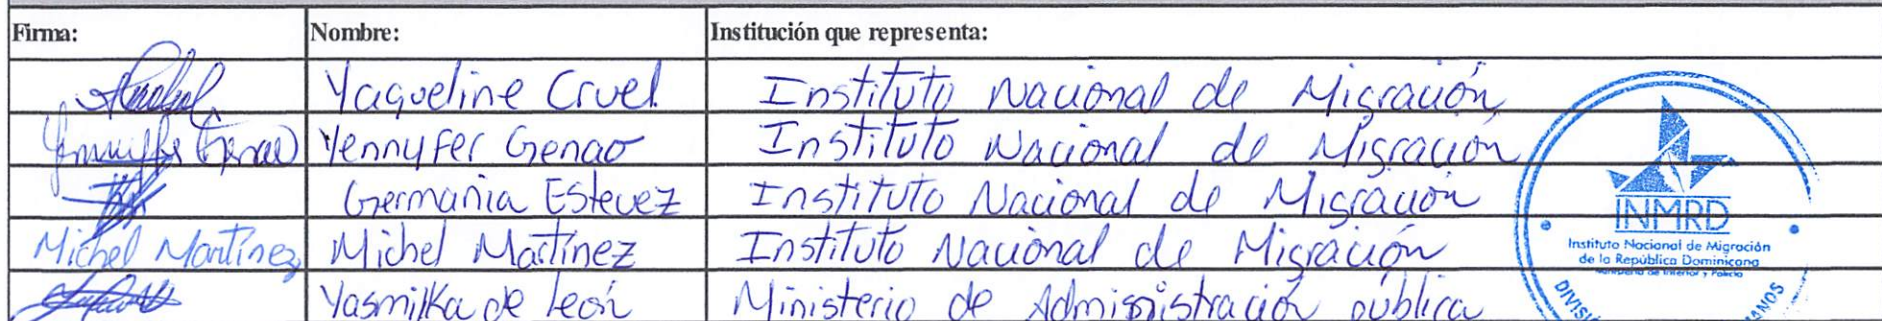 Firma: Nombre: Institución que representa:
Yaqueline Cruel Instituto Nacional de Migración
Yennyfer Genao Yennyfer Genao Instituto Nacional de Migración
Germania Estevez Instituto Nacional de Migración
Michel Martínez Michel Martínez Instituto Nacional de Migración
Yasmilka de León Ministerio de Administración pública
INMRD
Instituto Nacional de Migración
de la República Dominicana
Ministerio de Interior y Policía